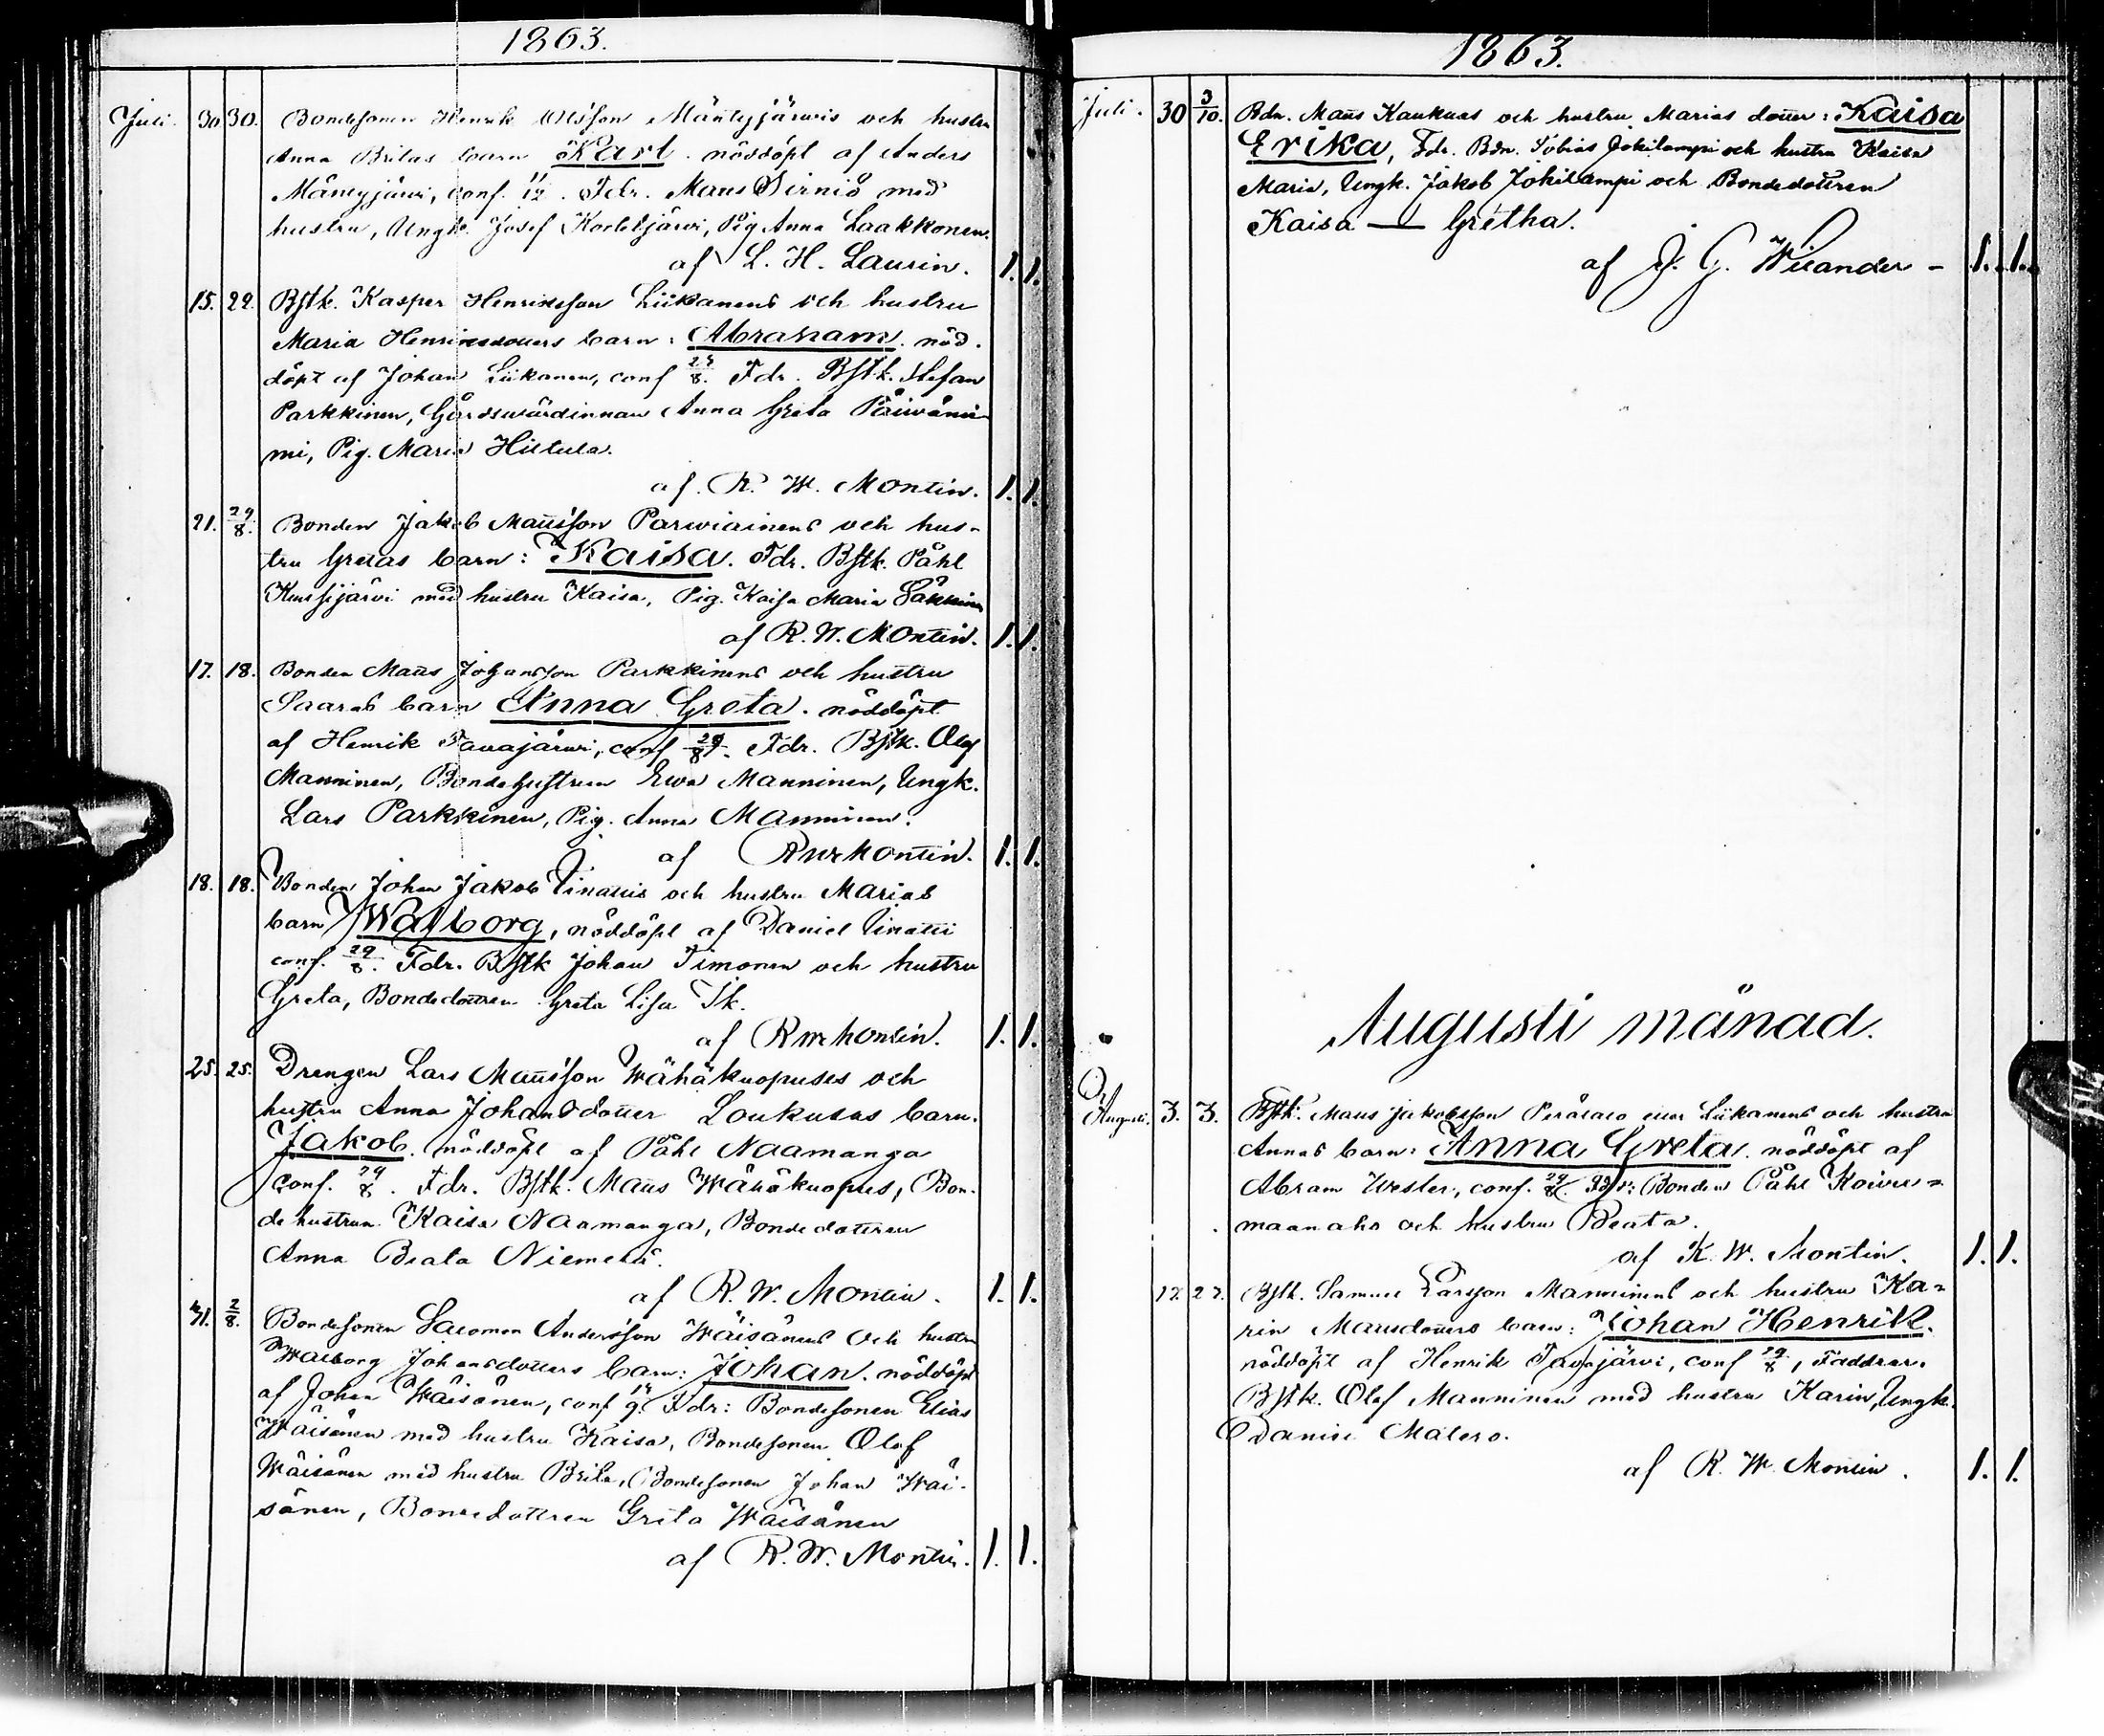 1863.
Juli. 30 30. Bondesonen Henrik Olsson Mäntyjärwis och hustru
Anna Britas barn Karl. nöddöpt af Anders
Mäntyjärwi, conf. 11/12. Fdr. Mans Sirniö med
hustru, Ungk. Josef Korteljärwi, Pig Anna Laakkonen.
af L. H. Laurin. 1. 1.
15. 29. Bstk. Kasper Henriksson Liikanens och hustru
Maria Henriksdotters barn: Abraham. nöd-
döpt af Johan Liikanen, conf 29/8. Fdr. Bstk. Stefan
Parkkinen, Gårdswärdinnan Anna Greta Päiwänie-
mi, Pig. Maria Hiltula.
af. R. W. Montin. 1. 1.
21. 29/8. Bonden Jakob Mañsson Parwiainens och hus-
tru Gretas barn: Kaisa. Fdr. Bstk. Påhl
Kurssijärvi med hustru Kaisa, Pig. Kaisa Maria
af R. W. Montin. 1. 1.
17. 18. Bonden Mañs Johansson Parkkinens och hustru
Saaras barn Anna Greta. nöddöpt
af Henrik Tavajärwi, conf 29/8. Fdr. Bstk. Olof
Manninen, Bondehustrun Ewa Manninen, Ungk.
Lars Parkkinen, Pig. Anna Manninen.
af RWMontin. 1. 1.
18. 18. Bonden Johan Jakob Tinattis och hustru Marias
barn Walborg, nöddöpt af Daniel Tinatti
conf. 29/8. Fdr. Bstk Johan Timonen och hustru
Greta, Bondedottren Greta Lisa Ik.
af RWMontin. 1. 1.
25. 25. Drengen Lars Mañsson Wähäkuopuses och
hustru Anna Johansdotter Loukusas barn.
Jakob. nöddöpt af Påhl Naamanga
conf. 29/8. Fdr. Bstk. Mañs Wähäkuopus, Bon-
dehustrun Kaisa Naamanga, Bondedottren
Anna Beata Niemelä.
af R. W. Montin. 1. 1.
21. 2/8. Bondesonen Salomon Andersson Wäisänens och hustru
Walborg Johansdotters barn: Johan. nöddöpt
af Johan Wäisänen, conf 14/9. Fdr: Bondesonen Elias
Wäisänen med hustru Kaisa, Bondesonen Olof
Wäisänen med hustru Brita, Bondesonen Johan Wäi-
sänen, Bondedottren Greta Wäisänen
af R. W. Montin. 1. 1.
1863.
Juli. 30 3/10. Bdn. Mañs Kaukuas och hustru Marias dotter: Kaisa
Erika, Fdr. Bdn. Tobias Jokilampi och hustru Kaisa
Maria, Ungk. Jakob Jokilampi och Bondedottren
Kaisa Gretha.
af J. G. Wikander - 1. 1.
Augusti månad.
Augusti. 3. 3. Bstk. Mans Jakobsson Perälalo Liikanens och hustru
Annas barn: Anna Greta. nöddöpt af
Abram Wester, conf. 29/8. Fdr: Bonden Påhl Koivu=
maanaho och hustru Beata.
af R. W. Montin. 1. 1.
17. 27. Bstk. Samuel Larsson Manninens och hustru Ka=
rin Mansdotters barn: Johan Henrik.
nöddöpt af Henrik Tavajärvi, conf 29/8, Faddrar.
Bstk. Olof Manninen med hustru Karin, Ungk.
Daniel Matero.
af R. W. Montin. 1. 1.